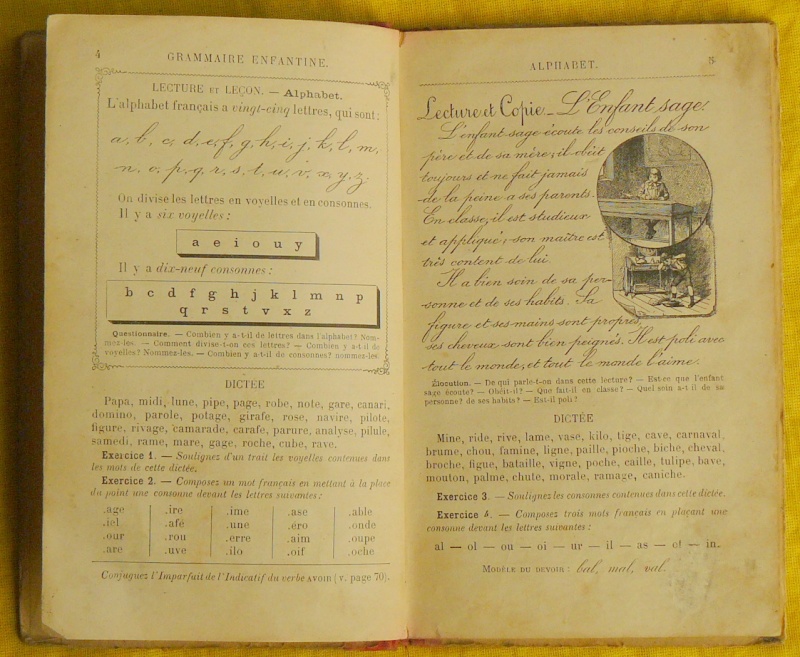 4
GRAMMAIRE ENFANTINE.
LECTURE ET LEÇON. — Alphabet.
L'alphabet français a vingt-cinq lettres, qui sont:
a, b, c, d, e, f, g, h, i, j, k, l, m,
n, o, p, q, r, s, t, u, v, x, y, z.
On divise les lettres en voyelles et en consonnes.
Il y a six voyelles :
a e i o u y
Il y a dix-neuf consonnes :
b c d f g h j k l m n p
q r s t v x z
Questionnaire. — Combien y a-t-il de lettres dans l'alphabet? Nom-
mez-les. — Comment divise-t-on ces lettres? — Combien y a-t-il de
voyelles? Nommez-les. — Combien y a-t-il de consonnes? nommez-les.
DICTÉE
Papa, midi, lune, pipe, page, robe, note, gare, canari,
domino, parole, potage, girafe, rose, navire, pilote,
figure, rivage, camarade, carafe, parure, analyse, pilule,
samedi, rame, mare, gage, roche, cube, rave.
Exercice 1. — Soulignez d'un trait les voyelles contenues dans
les mots de cette dictée.
Exercice 2. — Composez un mot français en mettant à la place
du point une consonne devant les lettres suivantes :
.age .ire .ime .ase .able
.iel .afé .une .éro .onde
.our .rou .erre .aim .oupe
.are .uve .ilo .oif .oche
Conjuguez l'Imparfait de l'Indicatif du verbe AVOIR (v. page 70).
ALPHABET.
5
Lecture et Copie. — L'Enfant sage.
L'enfant sage écoute les conseils de son
père et de sa mère; il obéit
toujours et ne fait jamais
de la peine à ses parents.
En classe, il est studieux
et appliqué; son maître est
très content de lui.
Il a bien soin de sa per-
sonne et de ses habits. Sa
figure et ses mains sont propres,
ses cheveux sont bien peignés. Il est poli avec
tout le monde, et tout le monde l'aime.
Élocution. — De qui parle-t-on dans cette lecture? — Est-ce que l'enfant
sage écoute? — Obéit-il? — Que fait-il en classe? — Quel soin a-t-il de sa
personne? de ses habits? — Est-il poli?
DICTÉE
Mine, ride, rive, lame, vase, kilo, tige, cave, carnaval,
brume, chou, famine, ligne, paille, pioche, biche, cheval,
broche, figue, bataille, vigne, poche, caille, tulipe, bave,
mouton, palme, chute, morale, ramage, caniche.
Exercice 3. — Soulignez les consonnes contenues dans cette dictée.
Exercice 4. — Composez trois mots français en plaçant une
consonne devant les lettres suivantes :
al — ol — ou — oi — ur — il — as — et — in.
MODÈLE DU DEVOIR : bal, mal, val.